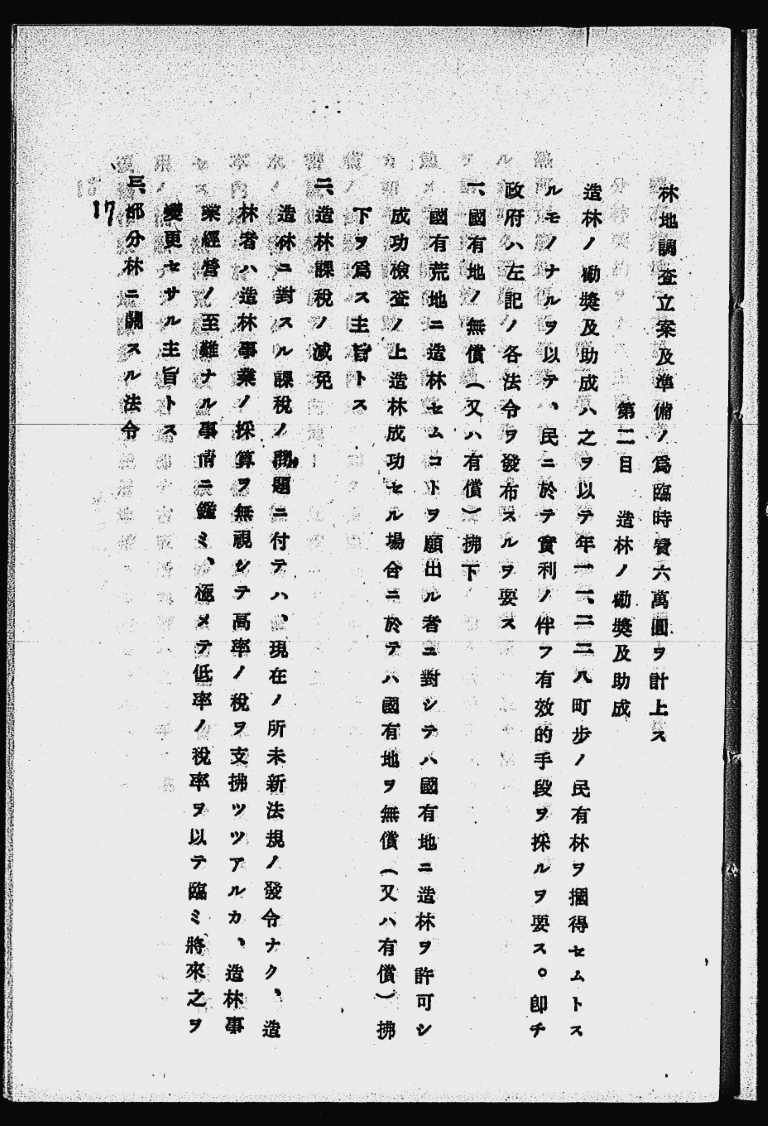 林地調査立案及準備ノ爲臨時費六萬圓ヲ計上ス
第二目　造林ノ勸奬及助成
造林ノ勸奬及助成ハ之ヲ以テ年一一、二二八町步ノ民有林ヲ摑得セムトス
ルモノナルヲ以テ、民ニ於テ實利ノ伴フ有效的手段ヲ採ルヲ要ス。卽チ
政府ハ左記ノ各法令ヲ發布スルヲ要ス
一、國有地ノ無償（又ハ有償）拂下
國有荒地ニ造林セムコトヲ願出ル者ニ對シテハ國有地ニ造林ヲ許可シ
成功檢査ノ上造林成功セル場合ニ於テハ國有地ヲ無償（又ハ有償）拂
下ヲ爲ス主旨トス
二、造林課稅ノ減免
造林ニ對スル課稅ノ問題ニ付テハ、現在ノ所未新法規ノ發令ナク、造
林者ハ造林事業ノ採算ヲ無視シテ高率ノ稅ヲ支拂ツツアルカ、造林事
業經營ノ至難ナル事情ニ鑑ミ、極メテ低率ノ稅率ヲ以テ臨ミ將來之ヲ
變更セサル主旨トス
三、部分林ニ關スル法令
17